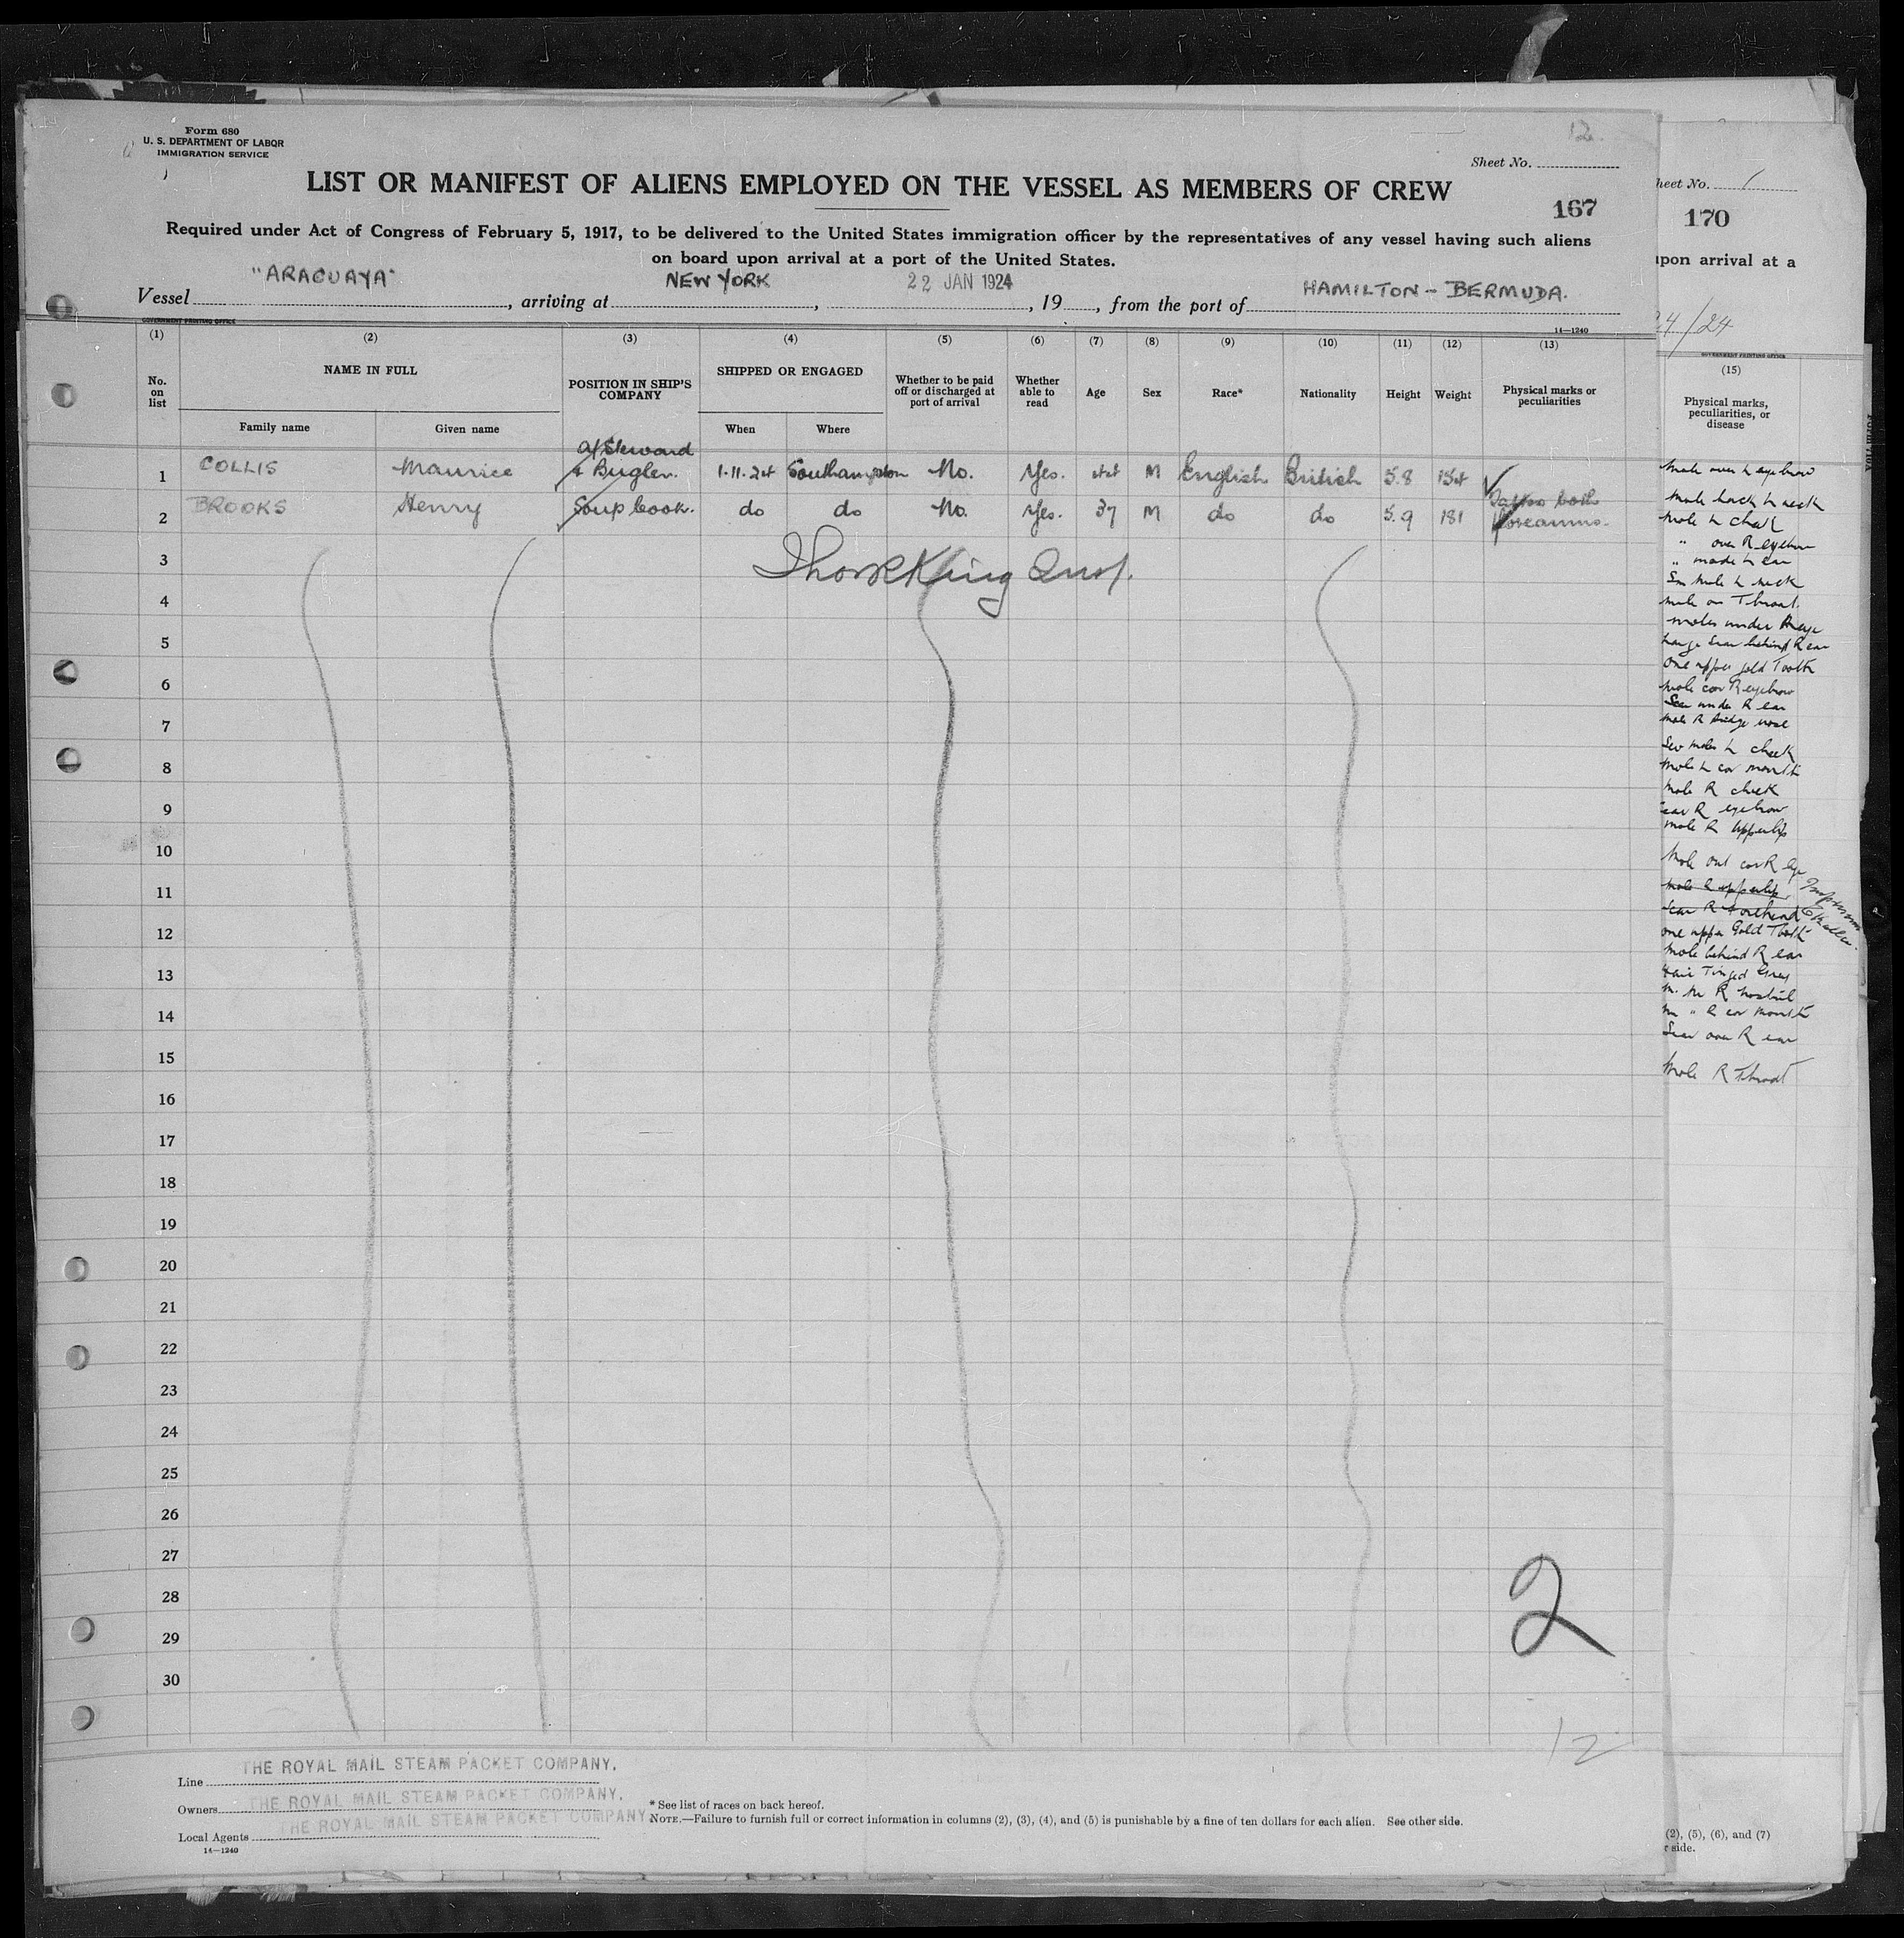 Form 680
U. S. DEPARTMENT OF LABOR
IMMIGRATION SERVICE
12
Sheet No.
LIST OR MANIFEST OF ALIENS EMPLOYED ON THE VESSEL AS MEMBERS OF CREW
167
Required under Act of Congress of February 5, 1917, to be delivered to the United States immigration officer by the representatives of any vessel having such aliens
on board upon arrival at a port of the United States.
Vessel "ARAGUAYA", arriving at NEW YORK, 22 JAN 1924, 19, from the port of HAMILTON - BERMUDA.
GOVERNMENT PRINTING OFFICE
14—1240
(1) (2) (3) (4) (5) (6) (7) (8) (9) (10) (11) (12) (13)
No. on list NAME IN FULL POSITION IN SHIP'S COMPANY SHIPPED OR ENGAGED Whether to be paid off or discharged at port of arrival Whether able to read Age Sex Race* Nationality Height Weight Physical marks or peculiarities
Family name Given name When Where
1 COLLIS Maurice a/Steward & Bugler. 1.11.24 Southampton No. Yes. 44 M English British 5.8 154
2 BROOKS Henry Soup Cook. do do No. Yes. 37 M do do 5.9 181 Tattoo both forearms.
3
4
5
6
7
8
9
10
11
12
13
14
15
16
17
18
19
20
21
22
23
24
25
26
27
28
29
30
2
12
Line THE ROYAL MAIL STEAM PACKET COMPANY.
Owners THE ROYAL MAIL STEAM PACKET COMPANY.
Local Agents THE ROYAL MAIL STEAM PACKET COMPANY.
14—1240
* See list of races on back hereof.
NOTE.—Failure to furnish full or correct information in columns (2), (3), (4), and (5) is punishable by a fine of ten dollars for each alien. See other side.
heet No. 1
170
upon arrival at a
24/24
GOVERNMENT PRINTING OFFICE
(15)
Physical marks,
peculiarities, or
disease
Mole over L eyebrow
Mole back L neck
Mole L cheek
" over R eyebrow
mole on Throat
moles under R eye
Large Scar behind R ear
One upper gold Tooth
mole cor R eyebrow
Scar under R ear
mole R bridge nose
Sev moles L cheek
Mole L cor mouth
Mole R cheek
scar R eyebrow
mole R upperlip
Mole out cor R eye
mole R upperlip
Scar R forehead
one upper Gold Tooth
Mole behind R ear
Hair Tinged Grey
Scar over R ear
Mole R Throat
(2), (5), (6), and (7)
r side.